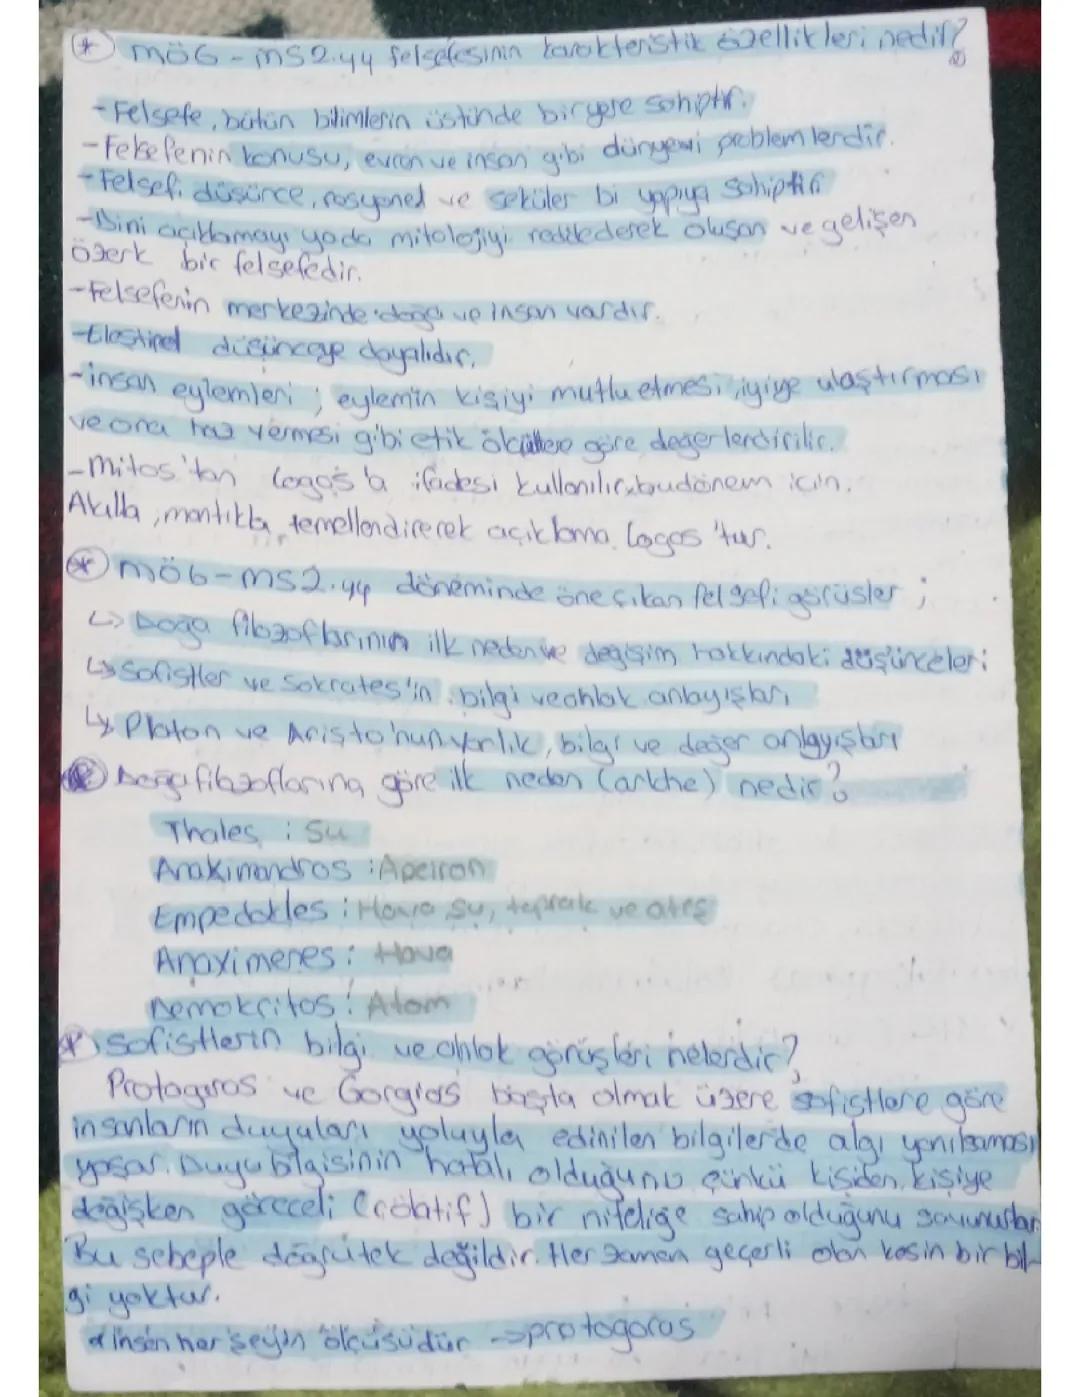 * MÖ6-MS2.yy felsefesinin karakteristik özellikleri nedir?
-Felsefe, bütün bilimlerin üstünde bir yere sahiptir.
-Felsefenin konusu, evren ve insan gibi dünyevi problemlerdir.
-Felsefi düşünce, rasyonel ve seküler bi yapıya sahiptir
-Dini açıklamayı yada mitolojiyi reddederek oluşan ve gelişen
özerk bir felsefedir.
-Felsefenin merkezinde doğa ve insan vardır.
-Eleştirel düşünceye dayalıdır.
-insan eylemleri ; eylemin kişiyi mutlu etmesi, iyiye ulaştırması
ve ona haz vermesi gibi etik ölçütlere göre değerlendirilir.
-Mitos'tan logos'a ifadesi kullanılır, bu dönem için.
Akılla, mantıkla temellendirerek açıklama logos'tur.
* MÖ6-MS2.yy döneminde öne çıkan felsefi görüşler ;
↳ Doğa filozoflarının ilk neden ve değişim hakkındaki düşünceleri
↳ Sofistler ve Sokrates'in bilgi ve ahlak anlayışları
↳ Platon ve Aristo'nun varlık, bilgi ve değer anlayışları
* Doğa filozoflarına göre ilk neden (arkhe) nedir?
Thales : Su
Anakimandros : Apeiron
Empedokles : Hava su, toprak ve ateş
Anaximenes : Hava
Demokritos : Atom
* Sofistlerin bilgi ve ahlak görüşleri nelerdir?
Protagoras ve Gorgias başta olmak üzere sofistlere göre
insanların duyuları yoluyla edinilen bilgilerde algı yanılsaması
yaşar. Duyu bilgisinin hatalı olduğunu çünkü kişiden kişiye
değişken göreceli (rölatif) bir niteliğe sahip olduğunu savunurlar.
Bu sebeple doğru tek değildir. Her zaman geçerli olan kesin bir bil-
gi yoktur.
* İnsan her şeyin ölçüsüdür → protagoras